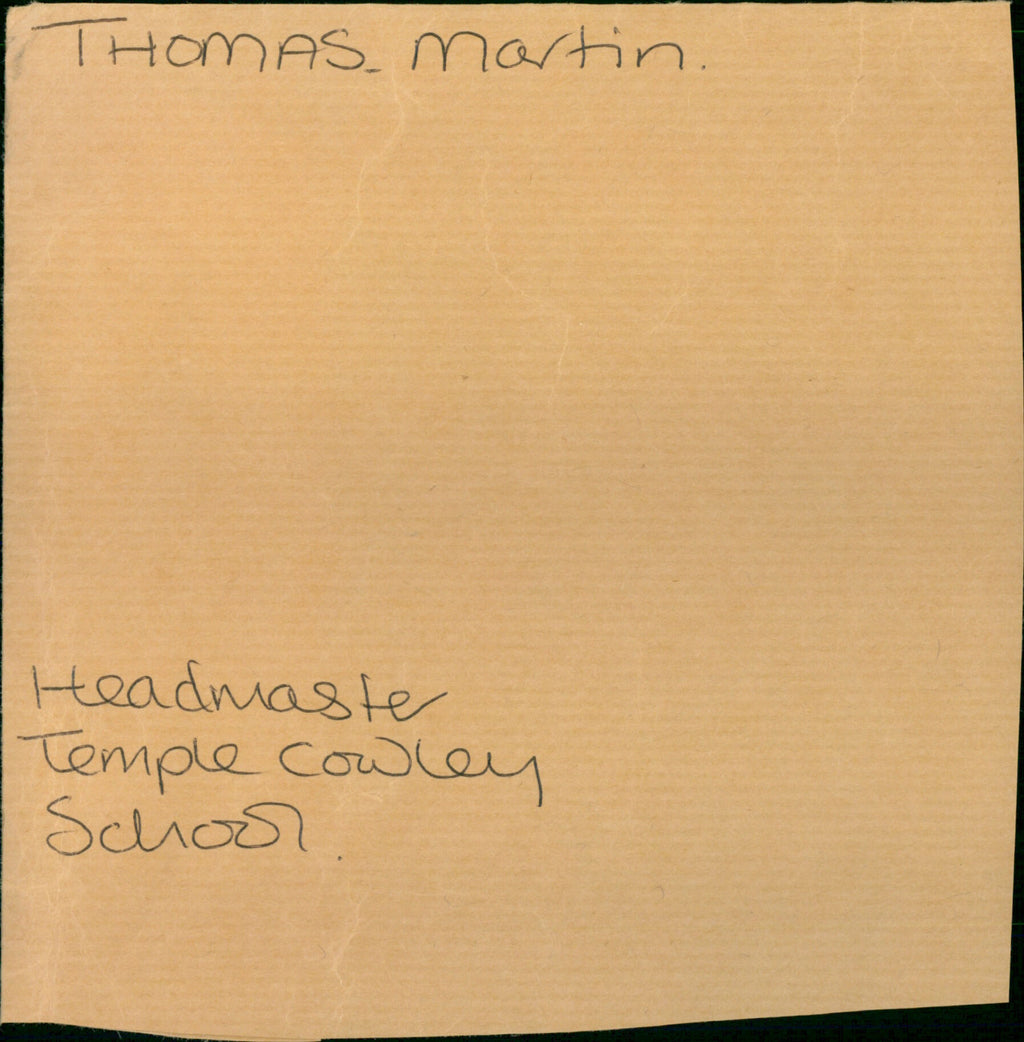 THOMAS. Martin.
Headmaster
Temple Cowley
School.